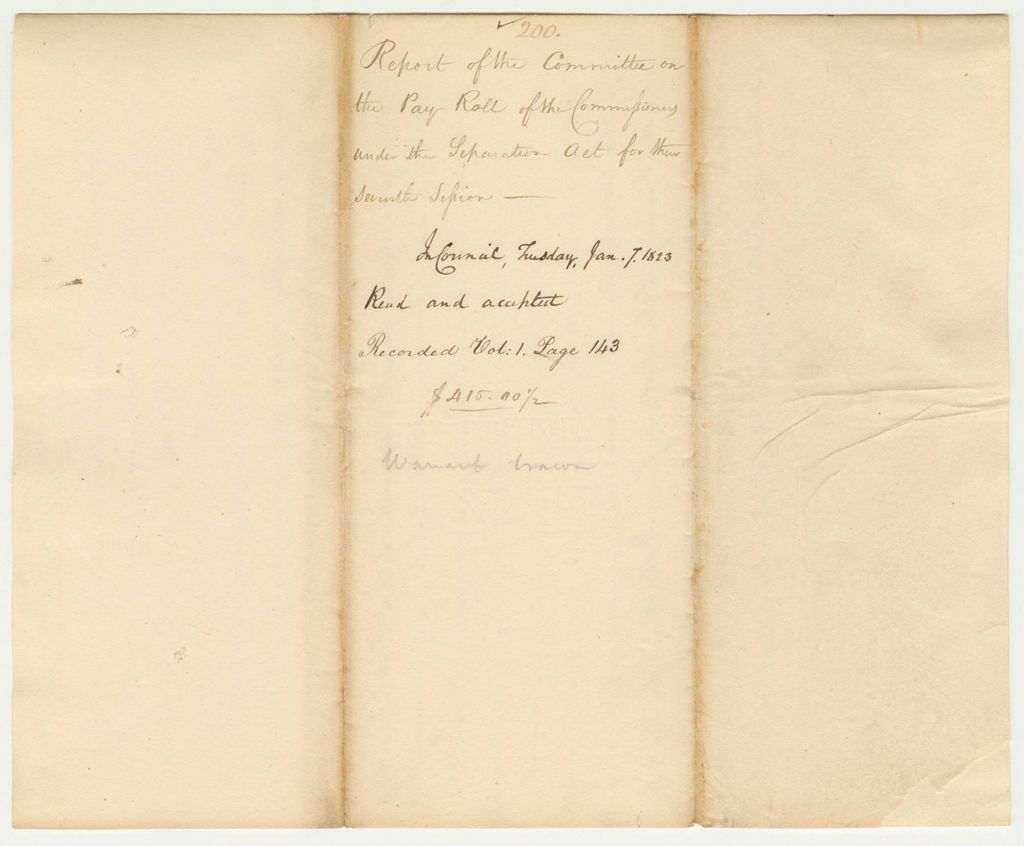 ✓ 200.
Report of the Committee on
the Pay Roll of the Commissioners
under the Separation Act for their
seventh Session —
In Council, Tuesday, Jan. 7. 1823
Read and accepted
Recorded Vol: 1. Page 143
$ 415. 00 1/2
Warrant drawn